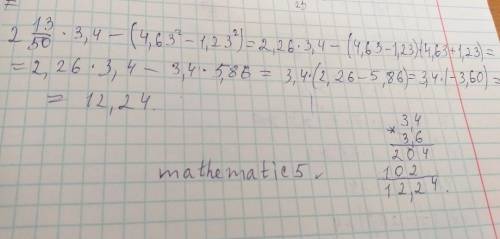 2 13/50 · 3,4 − (4,63² − 1,23²) = 2,26 · 3,4 − (4,63 − 1,23)(4,63 + 1,23) =
= 2,26 · 3,4 − 3,4 · 5,86 = 3,4 · (2,26 − 5,86) = 3,4 · (−3,60) =
= 12,24.
3,4
× 3,6
204
102
12,24.
mathematic5.